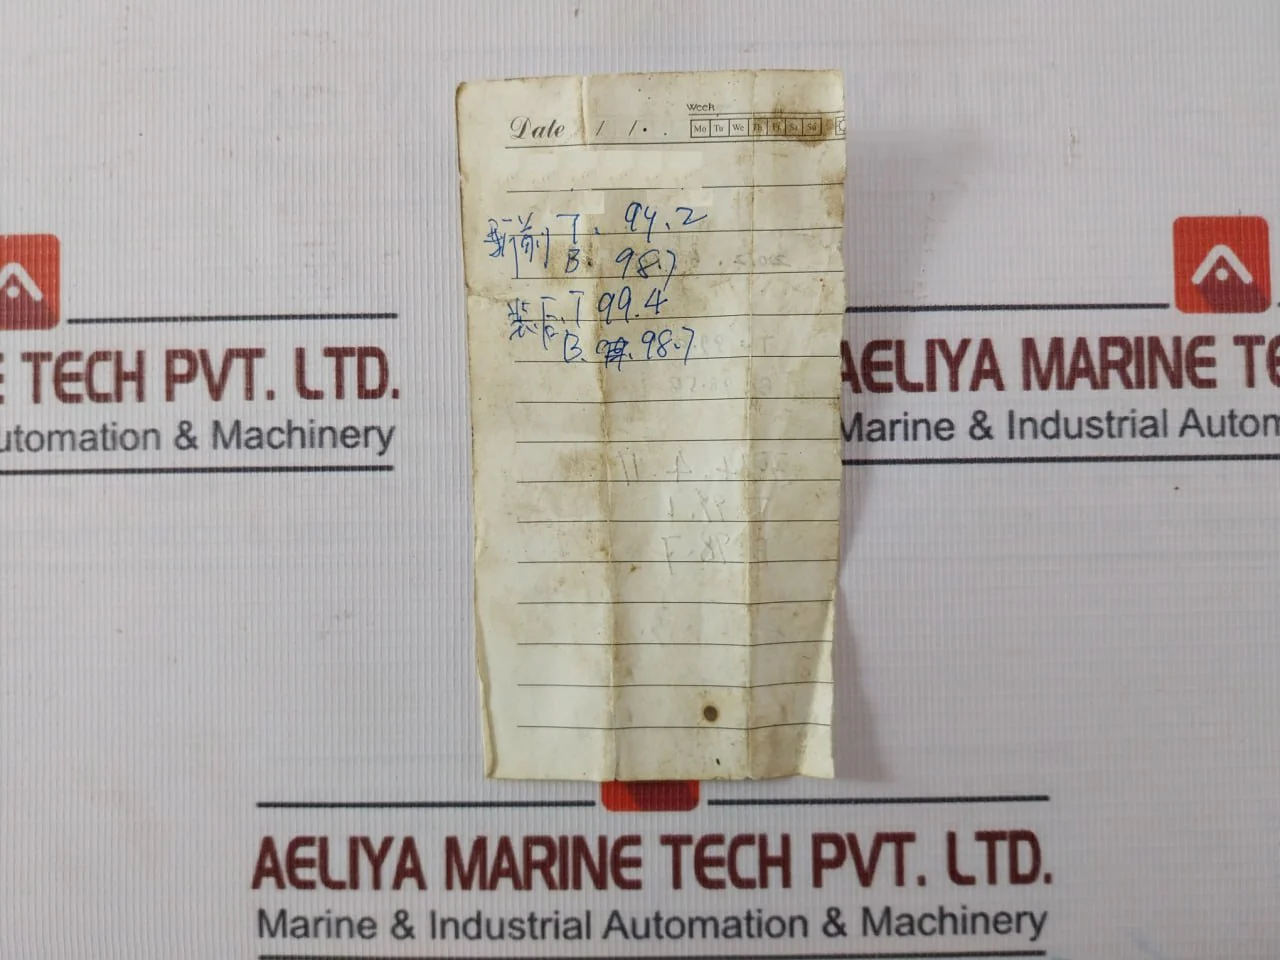 Week
Date / / . .
Mo Tu We Th Fr Sa Su
前 T. 94.2
B. 98.7
装后. T 99.4
B. 98.7
E TECH PVT. LTD.
utomation & Machinery
AELIYA MARINE TE
Marine & Industrial Autom
AELIYA MARINE TECH PVT. LTD.
Marine & Industrial Automation & Machinery